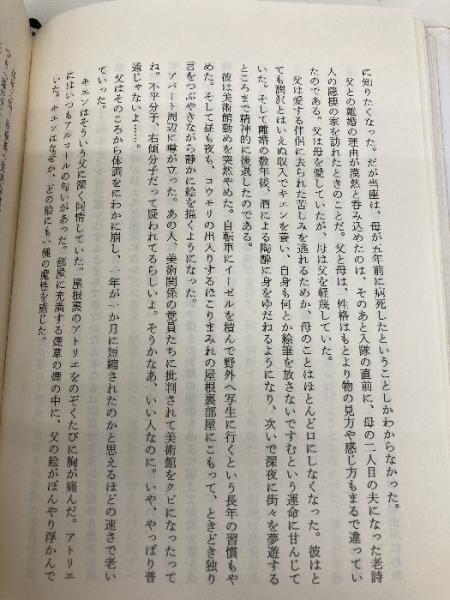 に知りたくなった。だが当座は、母が五年前に病死したということしかわからなかった。
父との離婚の理由が漠然と呑み込めたのは、そのあと入隊の直前に、母の二人目の夫になった老詩
人の隠棲の家を訪れたときのことだ。父と母は、性格はもとより物の見方や感じ方もまるで違ってい
たのである。父は母を愛していたが、母は父を軽蔑していた。
父は愛する伴侶に去られた苦しみを逃れるためか、母のことはほとんど口にしなくなった。彼はと
ても潤沢とはいえぬ収入でキエンを養い、自身も何とか絵筆を放さないですむという運命に甘んじて
いた。そして離婚の数年後、酒による陶酔に身をゆだねるようになり、次いで深夜に街々を夢遊する
ところまで精神的に後退したのである。
彼は美術館勤めを突然やめた。自転車にイーゼルを積んで野外へ写生に行くという長年の習慣もや
めた。そして昼も夜も、コウモリの出入りするほこりまみれの屋根裏部屋にこもって、ときどき独り
言をつぶやきながら静かに絵を描くようになった。
アパート周辺に噂が立った。あの人、美術関係の党員たちに批判されて美術館をクビになったって
ね。不平分子、右傾分子だって疑われてるらしいよ。そうかなあ、いい人なのに。いや、やっぱり普
通じゃないよ……。
父はそのころから体調をにわかに崩し、一年が一か月に短縮されたのかと思えるほどの速さで老い
ていった。
キエンはそういう父に深く同情していた。屋根裏のアトリエをのぞくたびに胸が痛んだ。アトリエ
にはいつもアルコールの匂いがあった。部屋に充満する煙草の煙の中に、父の絵がぼんやり浮かんで
いた。キエンはなぜか、どの絵にも一種の魔性を感じた。